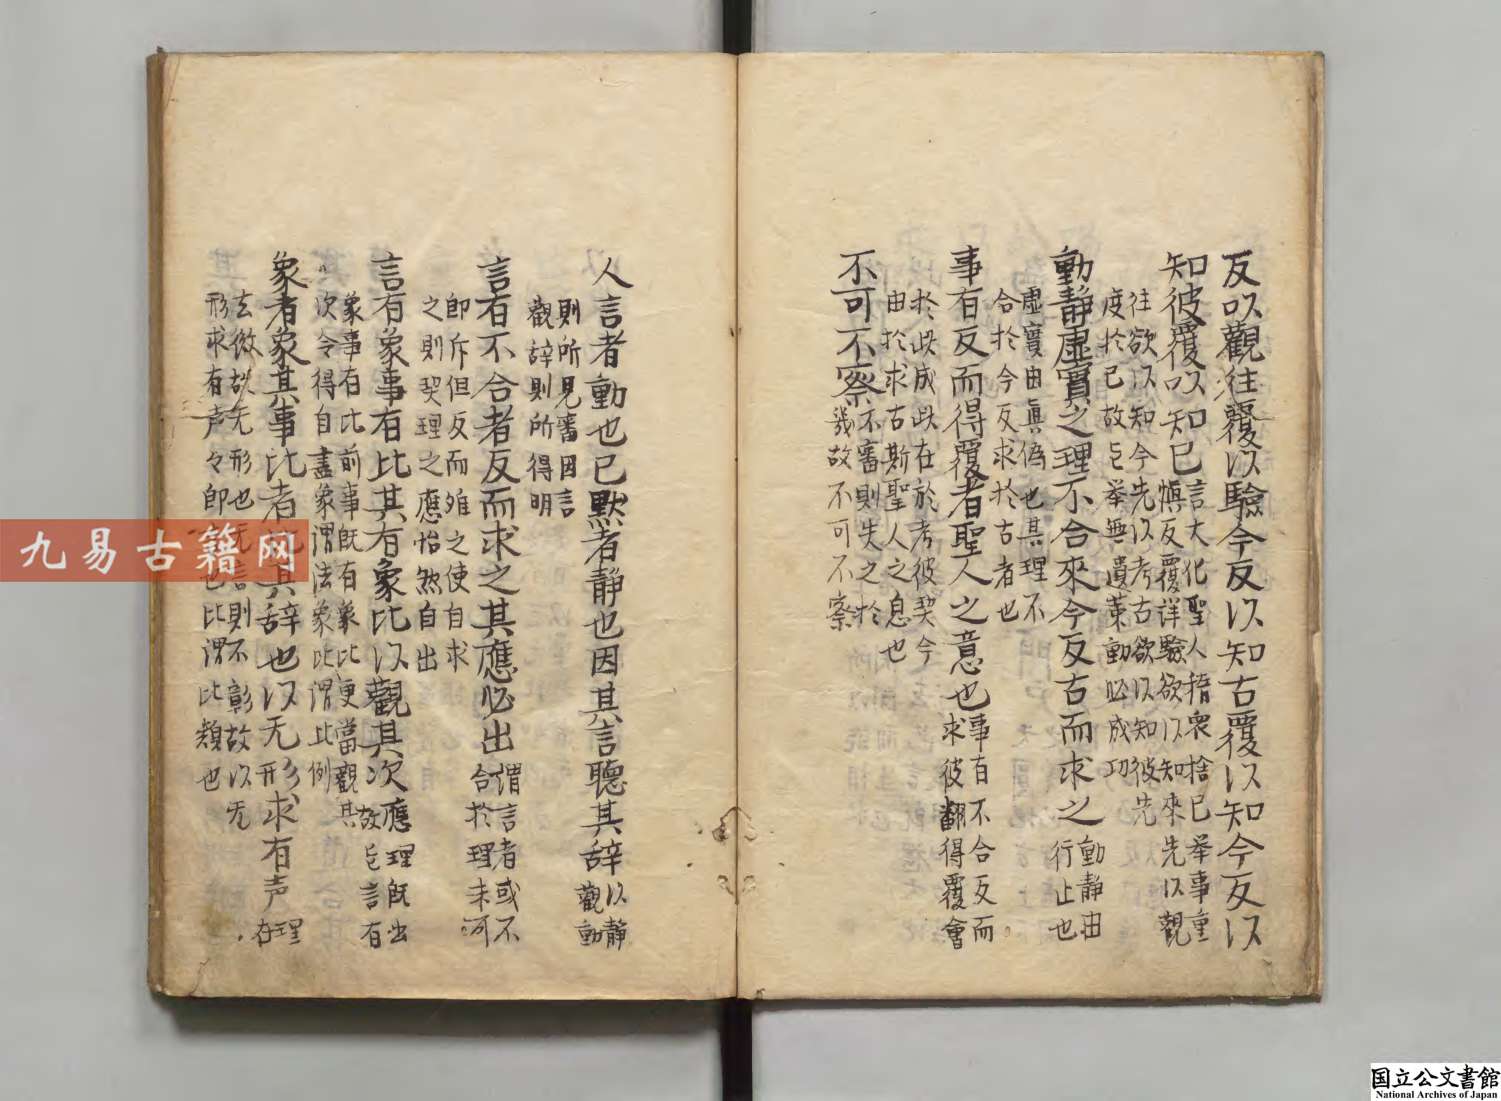 反以觀往覆以驗今反以知古覆以知今反以
知彼覆以知已
言大化聖人捂衆捨已举事重
慎反覆詳驗欲以知來先以觀
往欲以知今先以考古欲以知彼先
度於已故能举無遺策動必成功
動静虛實之理不合來今反古而求之
動静由
行止也
虛實由眞偽也其理不
合於今反求於古者也
事有反而得覆者聖人之意也
事有不合反而
求彼翻得覆會
於此成此在於考彼契今
由於求古斯聖人之息也
不可不察
不審則失之於
幾故不可不察
人言者動也已默者静也因其言聽其辞
以静
觀動
則所見審因言
觀辞則所得明
言有不合者反而求之其應必出
謂言者或不
合於理未可
即斥但反而难之使自求
之則契理之應怡然自出
言有象事有比其有象比以觀其次
應理既出
故能言有
象事有比前事既有象比更當觀其
次令得自盡象謂法象比謂比例
象者象其事比者其辞也以无形求有声
理
在
玄微故无形也无言則不彰故以无
形求有声々即也比謂比類也
九易古籍网
国立公文書館
National Archives of Japan